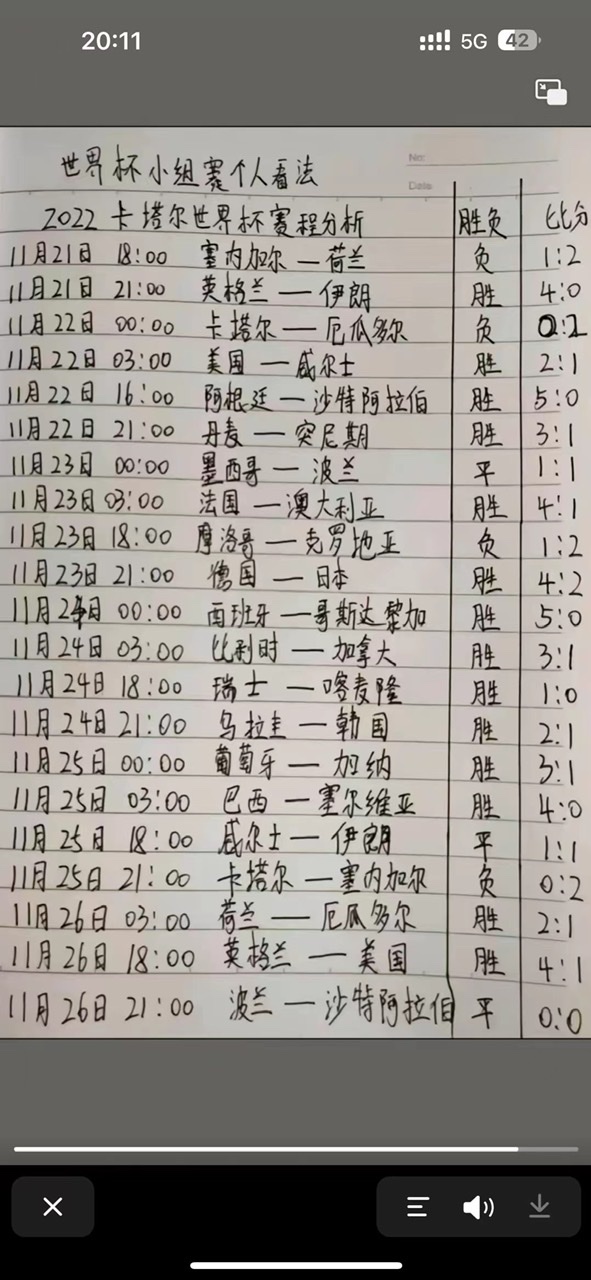 20:11 5G 42
No:
Date
世界杯小组赛个人看法
2022 卡塔尔世界杯赛程分析 胜负 比分
11月21日 18:00 塞内加尔—荷兰 负 1:2
11月21日 21:00 英格兰—伊朗 胜 4:0
11月22日 00:00 卡塔尔—厄瓜多尔 负 0:2
11月22日 03:00 美国—威尔士 胜 2:1
11月22日 16:00 阿根廷—沙特阿拉伯 胜 5:0
11月22日 21:00 丹麦—突尼斯 胜 3:1
11月23日 00:00 墨西哥—波兰 平 1:1
11月23日 03:00 法国—澳大利亚 胜 4:1
11月23日 18:00 摩洛哥—克罗地亚 负 1:2
11月23日 21:00 德国—日本 胜 4:2
11月24日 00:00 西班牙—哥斯达黎加 胜 5:0
11月24日 03:00 比利时—加拿大 胜 3:1
11月24日 18:00 瑞士—喀麦隆 胜 1:0
11月24日 21:00 乌拉圭—韩国 胜 2:1
11月25日 00:00 葡萄牙—加纳 胜 3:1
11月25日 03:00 巴西—塞尔维亚 胜 4:0
11月25日 18:00 威尔士—伊朗 平 1:1
11月25日 21:00 卡塔尔—塞内加尔 负 0:2
11月26日 03:00 荷兰—厄瓜多尔 胜 2:1
11月26日 18:00 英格兰—美国 胜 4:1
11月26日 21:00 波兰—沙特阿拉伯 平 0:0